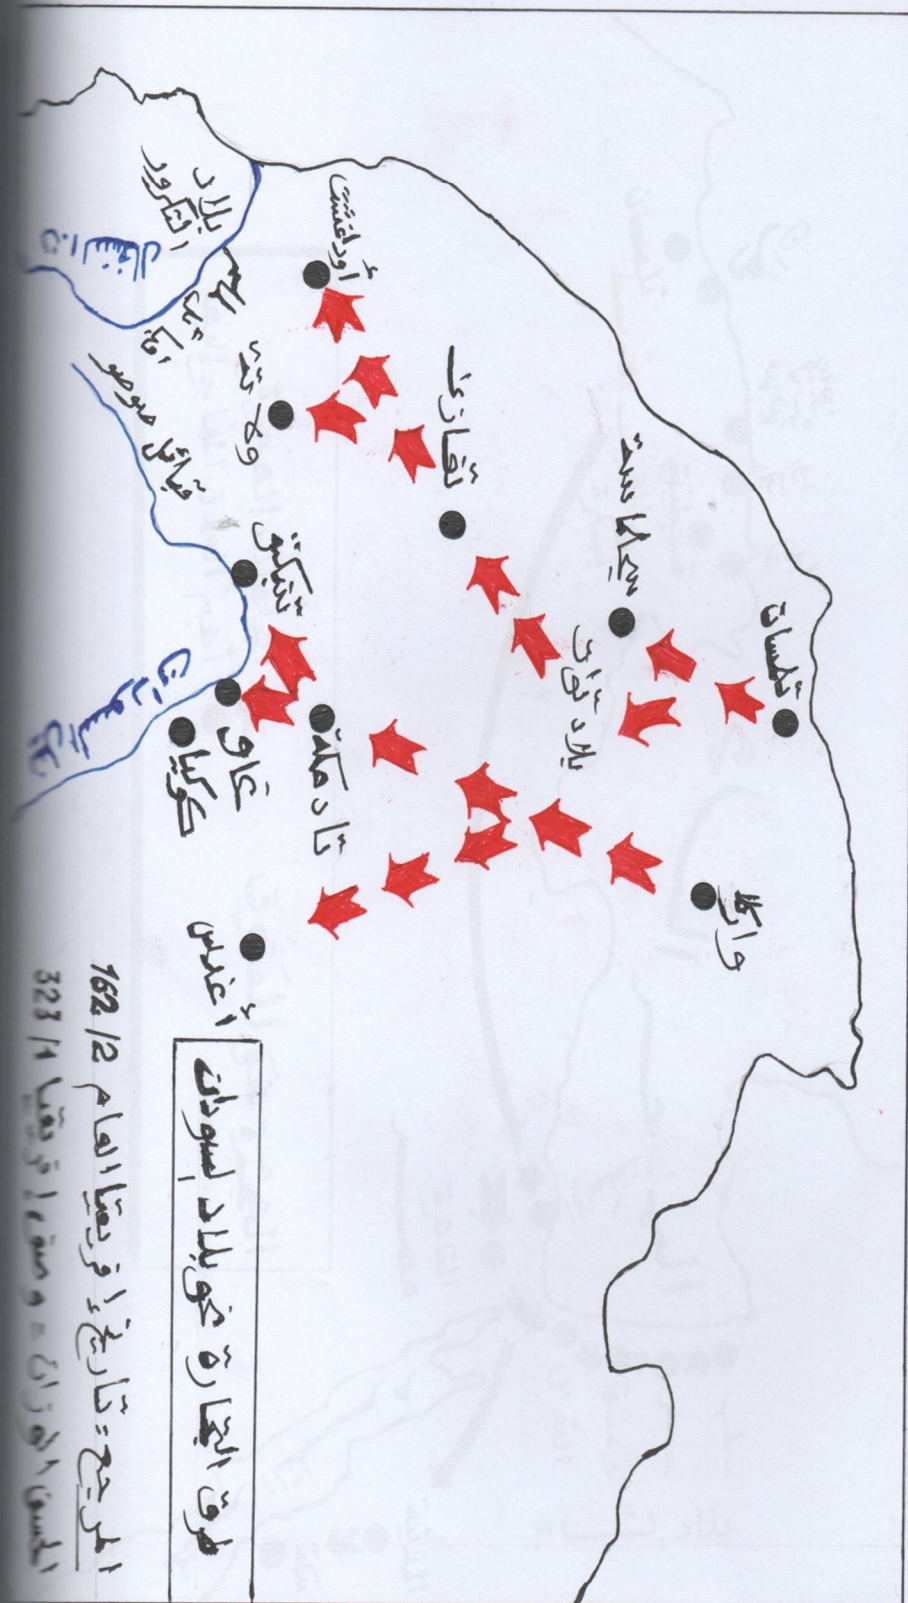 تلمسان
واركلا
سجلماسة
بلاد توات
تغازى
أودغشت
ولاتة
تنبكتو
تادمكة
غاو
كوكيا
أغدس
بلاد
التكرور
ن السنغال
قبائل صوصو
طرق التجارة نحو بلاد السودان
المرجع = تاريخ إفريقيا العام 2/162
الحسن الوزان = وصف إفريقيا 1/323